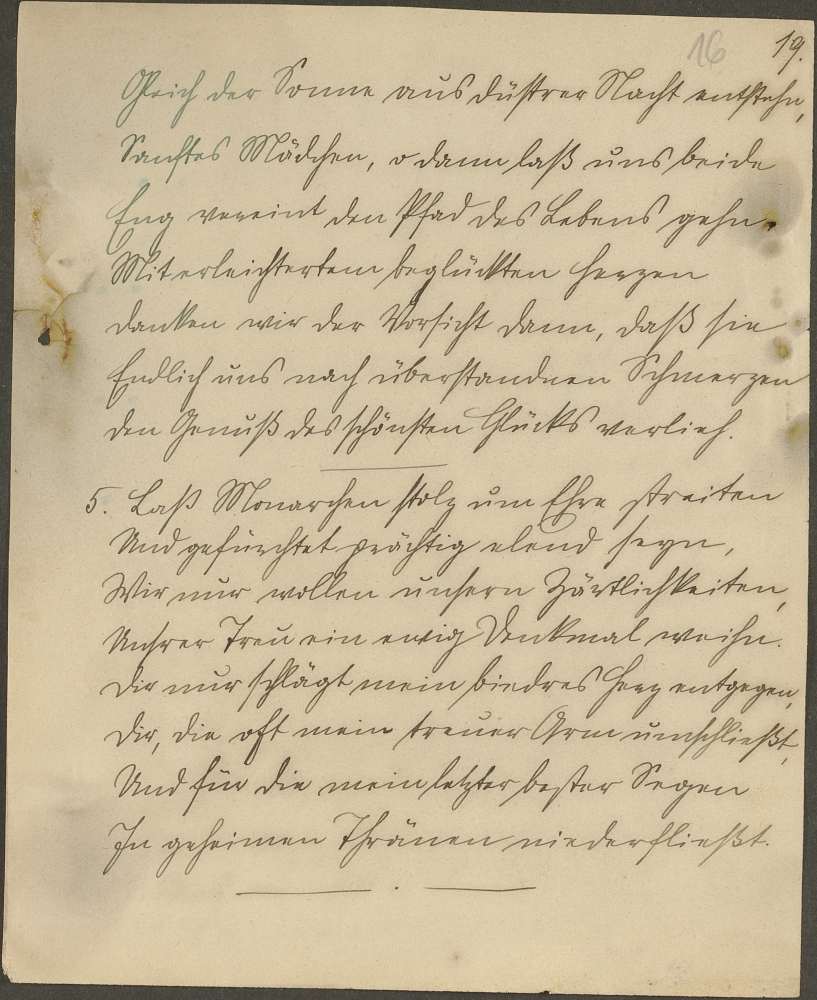 16 19.
Gleich der Sonne aus düstrer Nacht entstehn,
Sanftes Mädchen, o dann laß uns beide
Eng vereint den Pfad des Lebens gehn.
Mit erleichtertem beglückten Herzen
danken wir der Vorsicht dann, daß sie
Endlich uns nach überstandnen Schmerzen
den Genuß des schönsten Glücks verlieh.
5. Laß Monarchen stolz um Ehre streiten
Und gefürchtet prächtig elend seyn,
Wir nur wollen unsern Zärtlichkeiten,
Unsrer Treu ein ewig Denkmal weihn.
Dir nur schlägt mein biedres Herz entgegen,
Dir, die oft mein treuer Arm umschließt,
Und für die mein letzter bester Segen
In geheimen Thränen niederfließt.